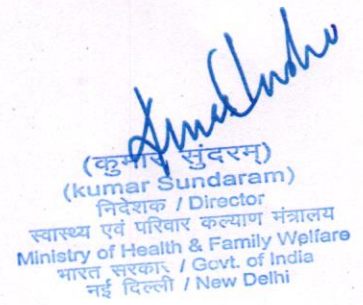 (कुमार सुंदरम)
(kumar Sundaram)
निदेशक / Director
स्वास्थ्य एवं परिवार कल्याण मंत्रालय
Ministry of Health & Family Welfare
भारत सरकार / Govt. of India
नई दिल्ली / New Delhi